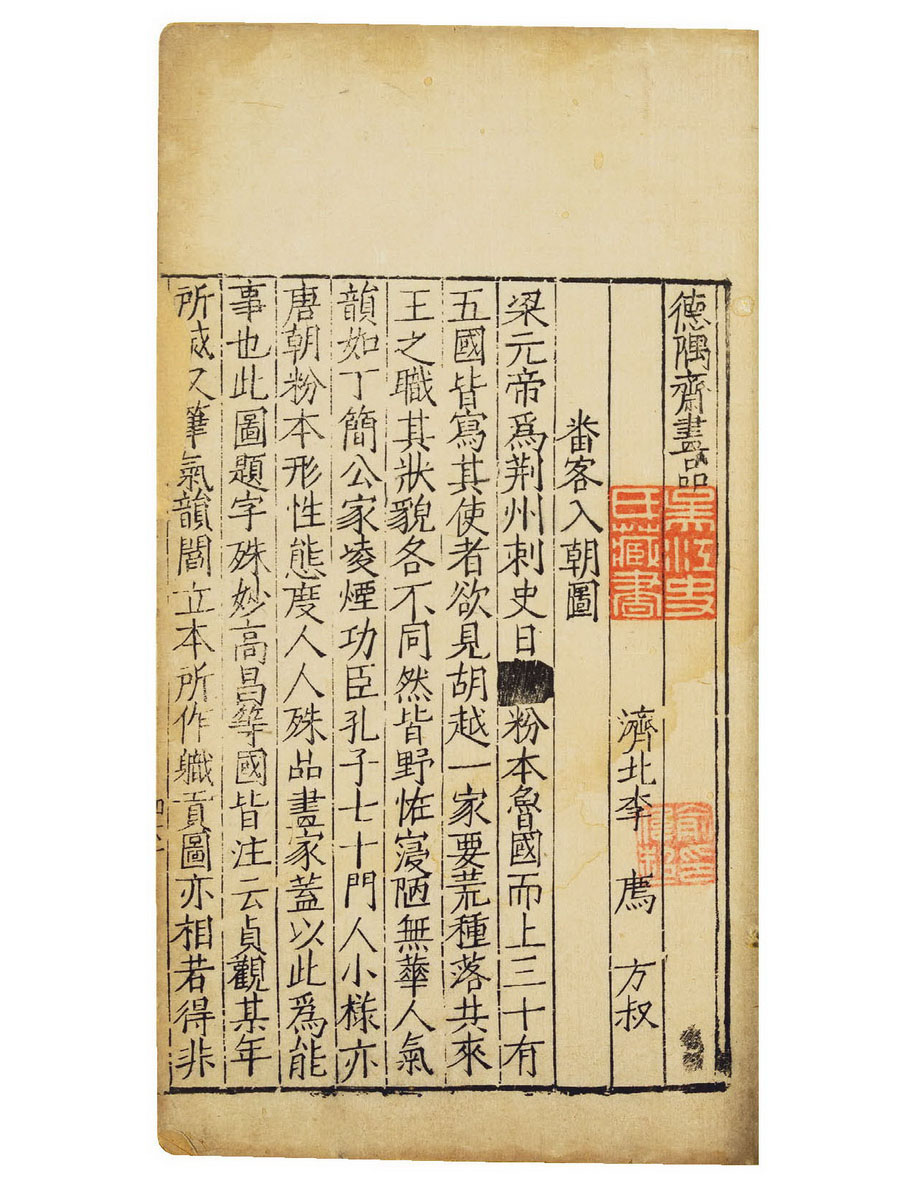 德隅齋畫品
吳江史
氏藏書
濟北李 廌 方叔
番客入朝圖
梁元帝爲荆州刺史日 粉本魯國而上三十有
五國皆寫其使者欲見胡越一家要荒種落共來
王之職其狀貌各不同然皆野恠寢陋無華人氣
韻如丁簡公家凌煙功臣孔子七十門人小様亦
唐朝粉本形性態度人人殊品畫家蓋以此爲能
事也此圖題字殊妙高昌等國皆注云貞觀某年
所 又筆氣韻閻立本所作軄貢圖亦相若得非